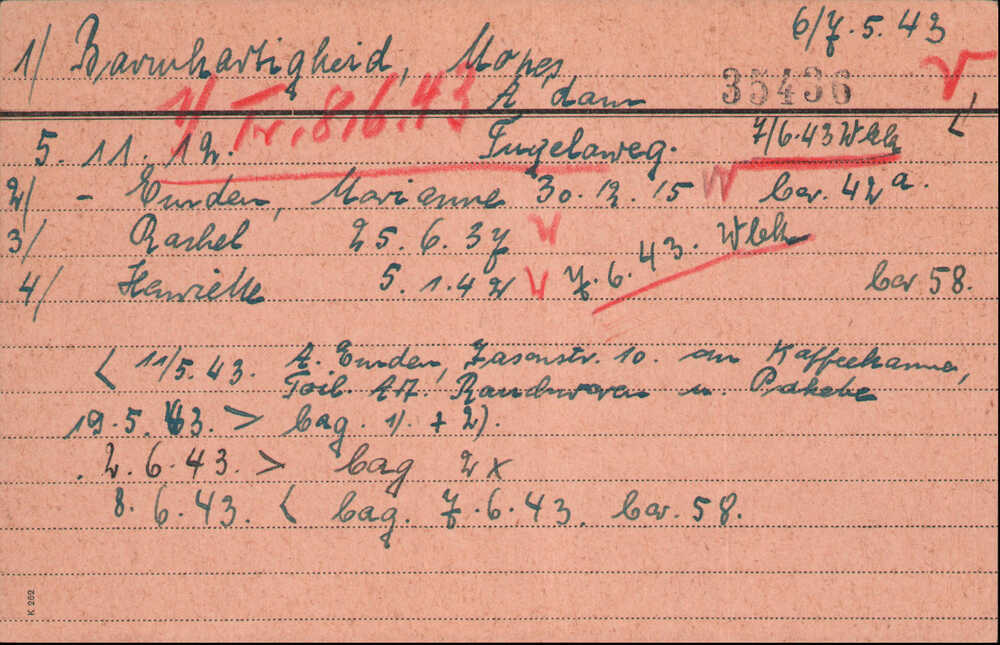 6/7.5.43
1/ Barmhartigheid, Mozes
A'dam 35436
1/ Tr. 8/6.43
5.11.12. Tugelaweg. 7/6.43 Wbk
2/ - Emden, Marianne 30.12.15 bar. 42a.
3/ Rachel 25.6.37
4/ Henriette 5.1.42 7.6.43. Wbk bar 58.
< 11/5.43. A. Emden, Jasonstr. 10. um Kaffeekanne,
Toil. Art. Rauchwaren u. Pakete
19.5.43. > bag. 1). + 2).
2.6.43. > bag 2x
8.6.43. < bag. 7.6.43. bar. 58.
K 262